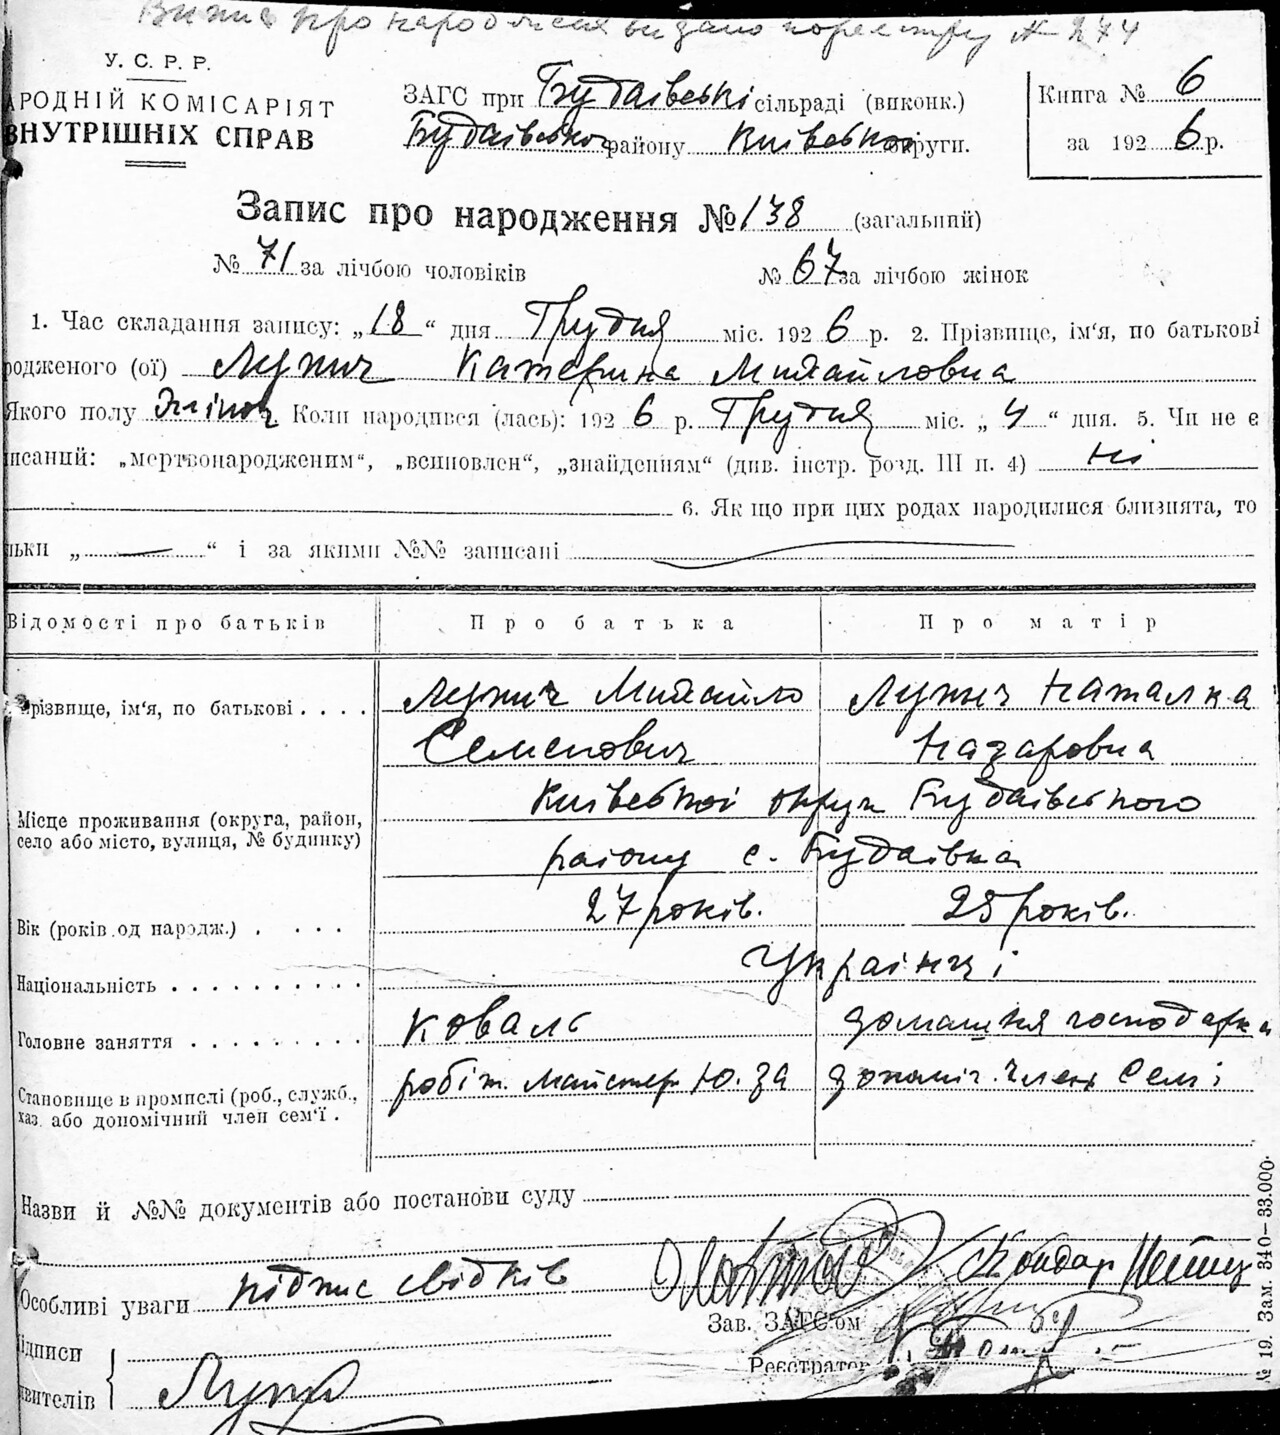 Витяг про народження видано по реєстру № 274
У. С. Р. Р.
АРОДНІЙ КОМІСАРІЯТ
ВНУТРІШНІХ СПРАВ
ЗАГС при Будаївські сільраді (виконк.)
Будаївськог району Київської округи.
Книга № 6
за 1926 р.
Запис про народження № 138 (загальний)
№ 71 за лічбою чоловіків № 67 за лічбою жінок
1. Час складання запису: „18“ дня Грудня міс. 1926 р. 2. Прізвище, ім'я, по батькові
родженого (ої) Лупич Катерина Михайловна
Якого полу жіноч Коли народився (лась): 1926 р. Грудня міс. „4“ дня. 5. Чи не є
писаний: „мертвонародженим“, „всиновлен“, „знайденням“ (див. інстр. розд. III п. 4) ні
6. Як що при цих родах народилися близнята, то
льки „ — “ і за якими №№ записані
Відомості про батьків Про батька Про матір
Прізвище, ім'я, по батькові . . . . Лупич Михайло Лупич Наталка
Семенович Назаровна
Київської округи Будаївського
Місце проживання (округа, район,
село або місто, вулиця, № будинку)
району с. Будаївка
Вік (років од народж.) . . . . . 27 років. 25 років.
Національність . . . . . . . . . . Українці
Головне заняття . . . . . . . . . Коваль домашня господарка
Становище в промислі (роб., служб., робіт. майстер. Ю. За допоміч. член семі
хаз. або допомічний член сем'ї .
Назви й №№ документів або постанови суду
Особливі уваги підпис свідків
Зав. ЗАГС'ом
ідписи
явителів
Реєстратор
№ 19. Зам. 340—33.000.